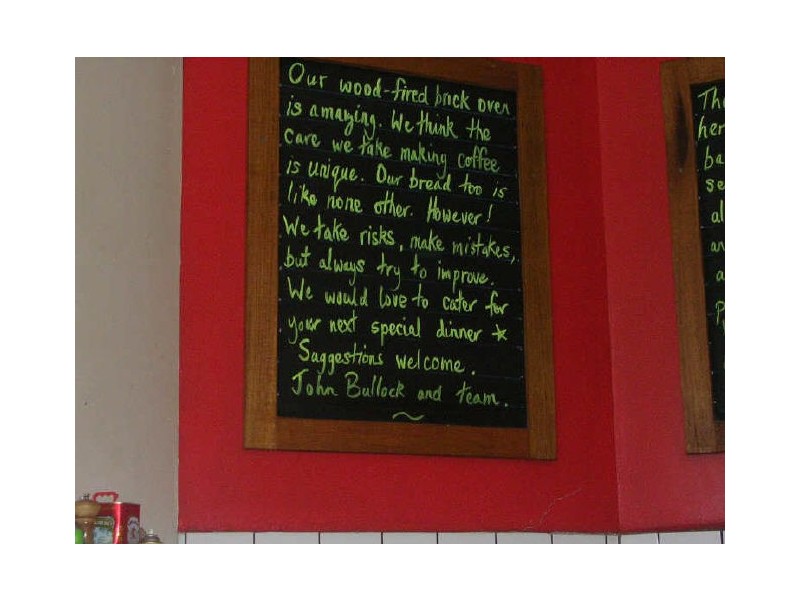 Our wood-fired brick oven
is amazing. We think the
care we take making coffee
is unique. Our bread too is
like none other. However!
We take risks, make mistakes,
but always try to improve.
We would love to cater for
your next special dinner *
Suggestions welcome.
John Bullock and team.